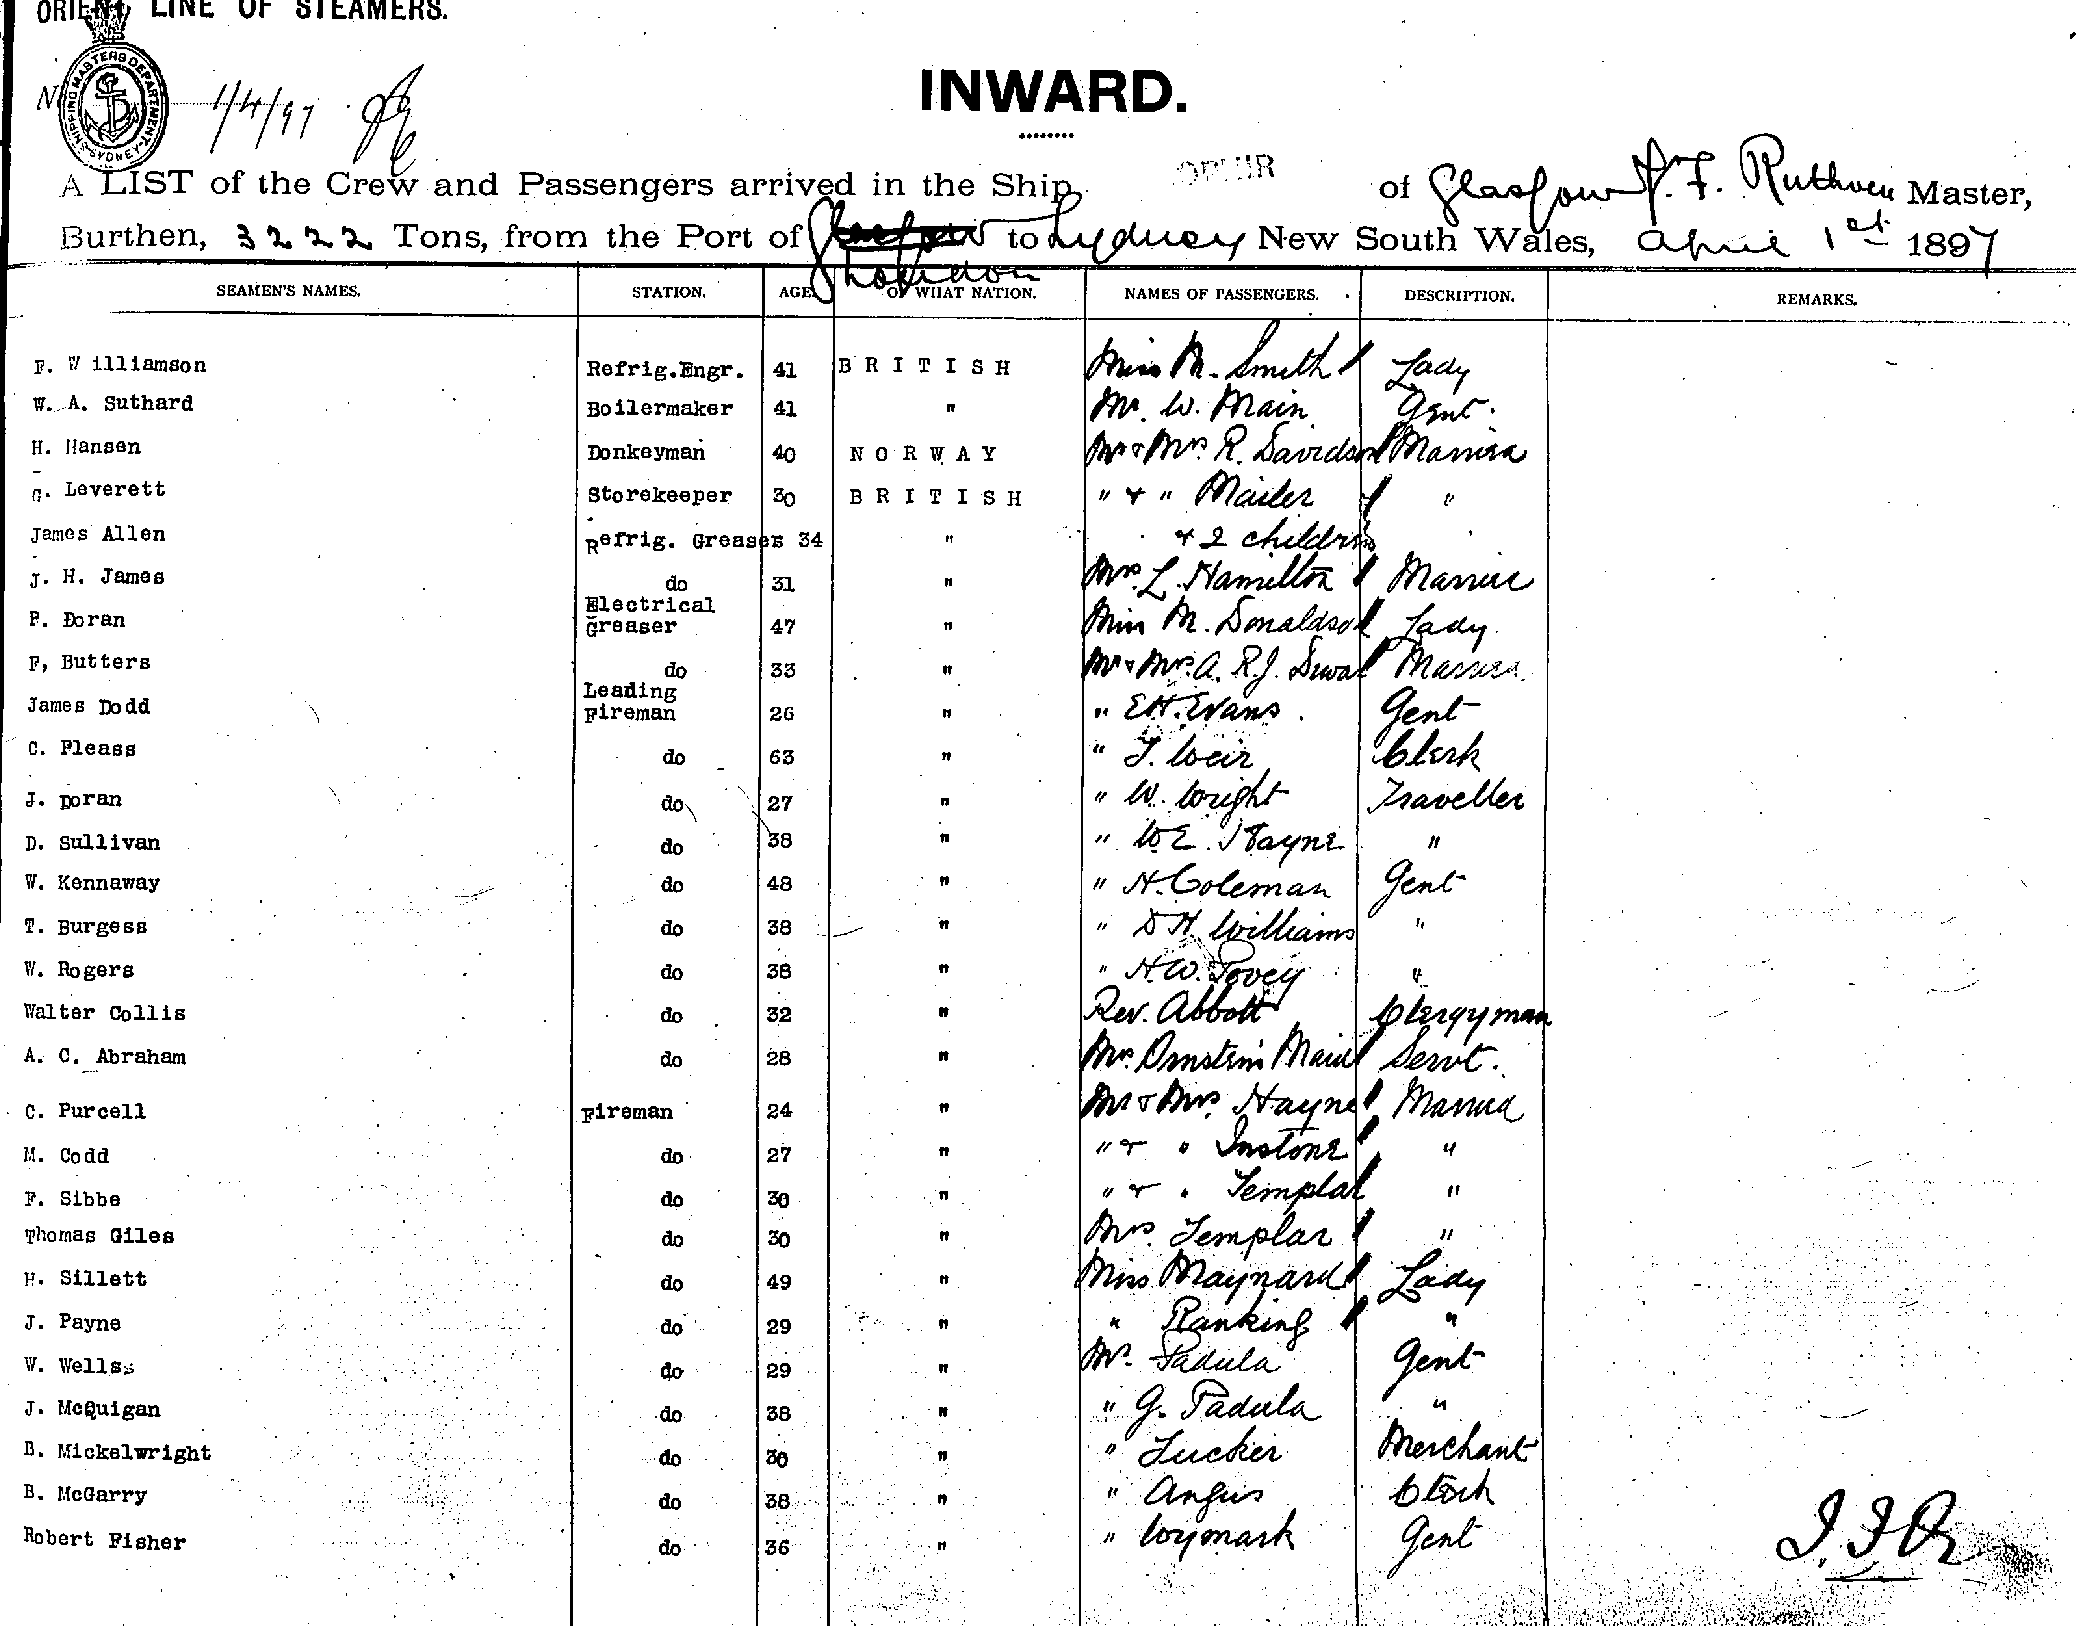 ORIENT LINE OF STEAMERS.
SHIPPING MASTERS DEPARTMENT SYDNEY
1/4/97
INWARD.
A LIST of the Crew and Passengers arrived in the Ship OPHIR of Glasgow J. F. Ruthven Master,
Burthen, 3222 Tons, from the Port of Glasgow to Sydney New South Wales, April 1st 1897
London
SEAMEN'S NAMES. STATION. AGE. OF WHAT NATION. NAMES OF PASSENGERS. DESCRIPTION. REMARKS.
F. Williamson Refrig.Engr. 41 BRITISH Miss M. Smith Lady
W. A. Suthard Boilermaker 41 " Mr. W. Main Gent.
H. Hansen Donkeyman 40 NORWAY Mr & Mrs R. Davidson Married
G. Leverett Storekeeper 30 BRITISH " & " Mailer "
James Allen Refrig. Greaser 34 " & 2 children
J. H. James do 31 " Mrs. L. Hamilton Married
P. Doran Electrical Greaser 47 " Miss M. Donaldson Lady
F, Butters do 33 " Mr & Mrs. A. R.J. Married
James Dodd Leading Fireman 26 " " E.H. Evans. Gent
C. Pleass do 63 " " J. Weir Clerk
J. Doran do 27 " " W. Wright Traveller
D. Sullivan do 38 " " W.E. Hayne "
W. Kennaway do 48 " " H. Coleman Gent
T. Burgess do 38 " " D H Williams "
W. Rogers do 38 " " H.W. Povey "
Walter Collis do 32 " Rev. Abbott Clergyman
A. C. Abraham do 28 " Mrs. Ornstein's Maid Servt.
C. Purcell Fireman 24 " Mr & Mrs. Hayne Married
M. Codd do 27 " " & " Instone "
F. Sibbe do 30 " " & " Templar "
Thomas Giles do 30 " Mrs. Templar "
H. Sillett do 49 " Miss Maynard Lady
J. Payne do 29 " " Ranking "
W. Wells do 29 " Mr. Padula Gent
J. McQuigan do 38 " " G. Padula "
B. Mickelwright do 30 " " Tucker Merchant
B. McGarry do 38 " " Angus Clerk
Robert Fisher do 36 " " Wymark Gent